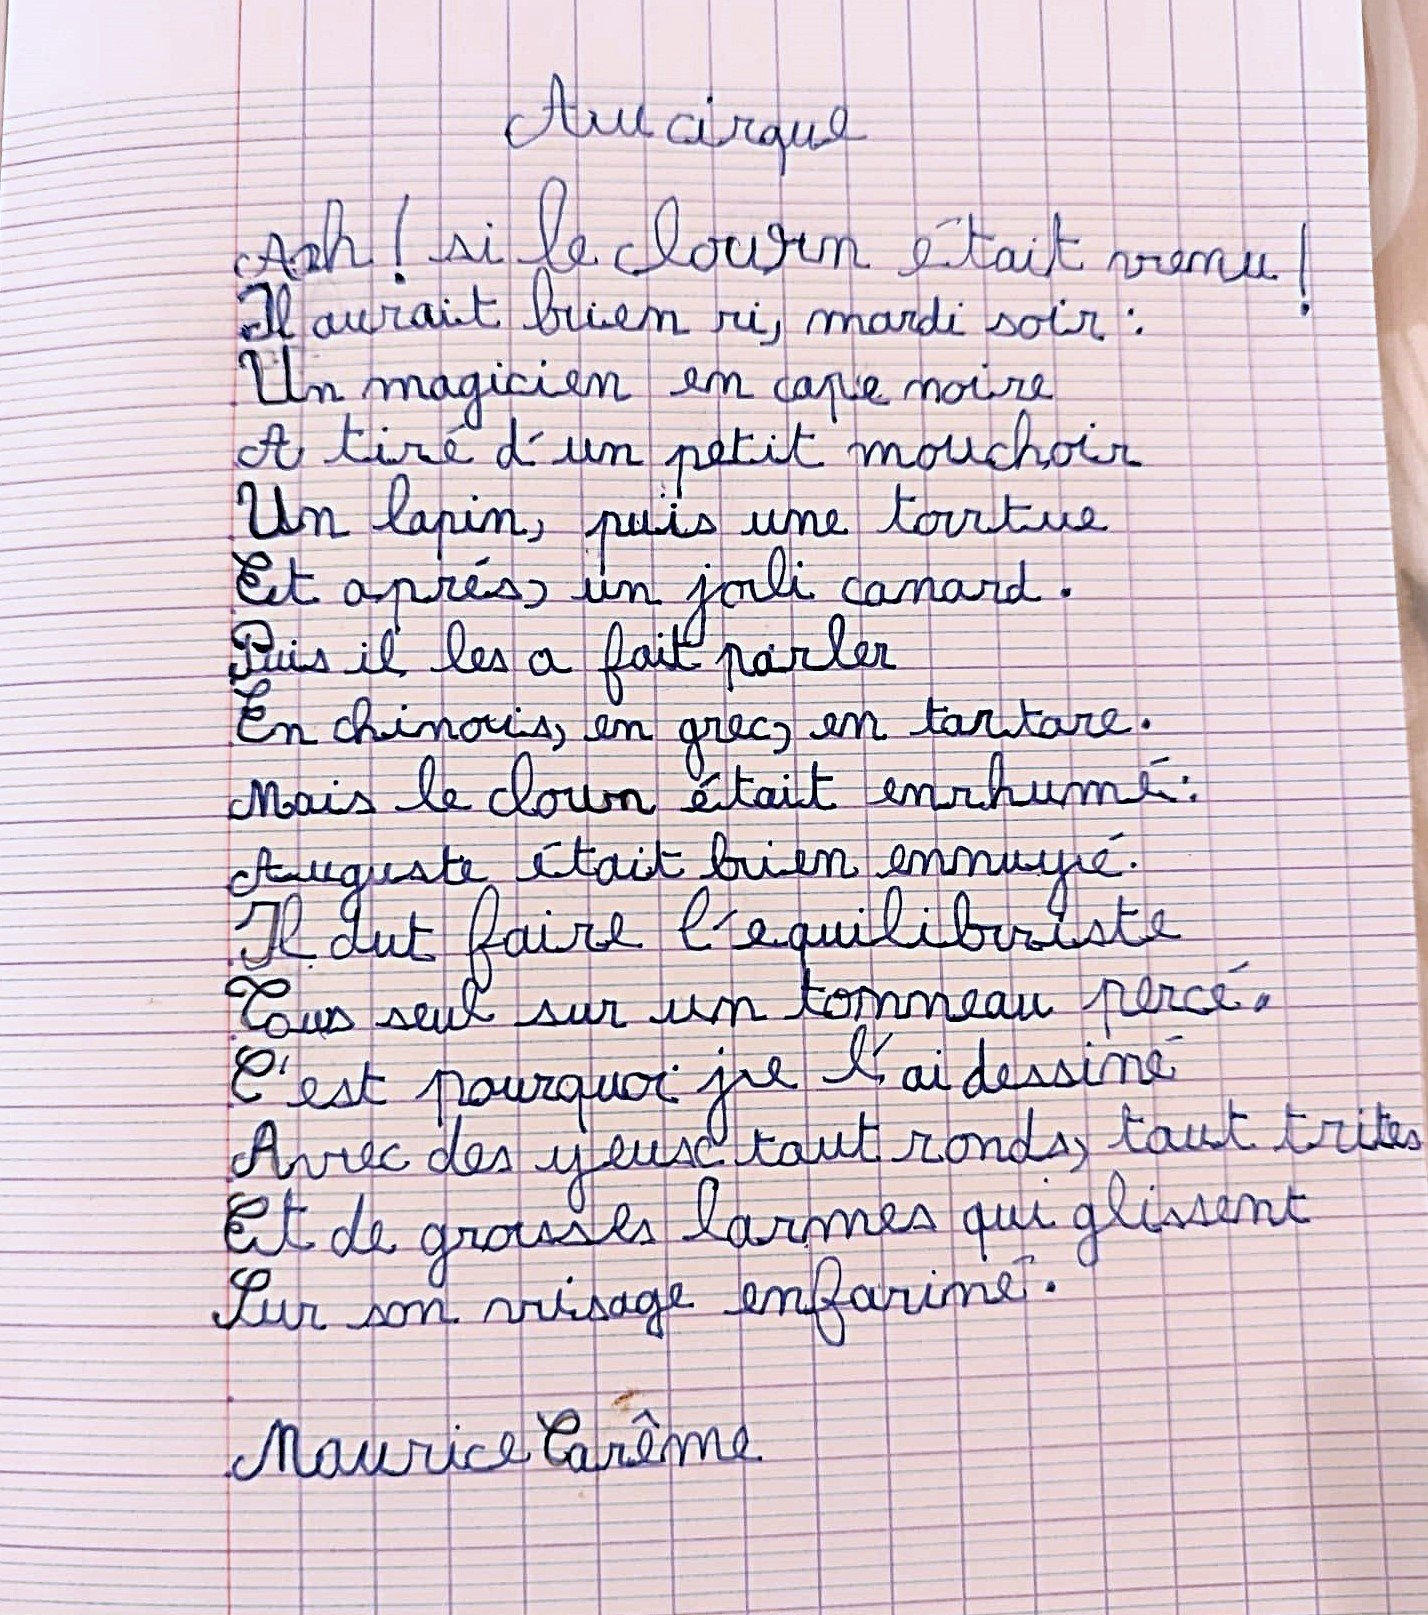 Au cirque
Ah ! si le clown était venu !
Il aurait bien ri, mardi soir :
Un magicien en cape noire
A tiré d'un petit mouchoir
Un lapin, puis une tortue
Et aprés, un joli canard.
Puis il les a fait parler
En chinois, en grec, en tartare.
Mais le clown était enrhumé :
Auguste était bien ennuyé.
Il dut faire l'equilibriste
Tous seul sur un tonneau percé.
C'est pourquoi je l'ai dessiné
Avec des yeux tout ronds, tout trites
Et de grosses larmes qui glissent
Sur son visage enfariné.
Maurice Carême